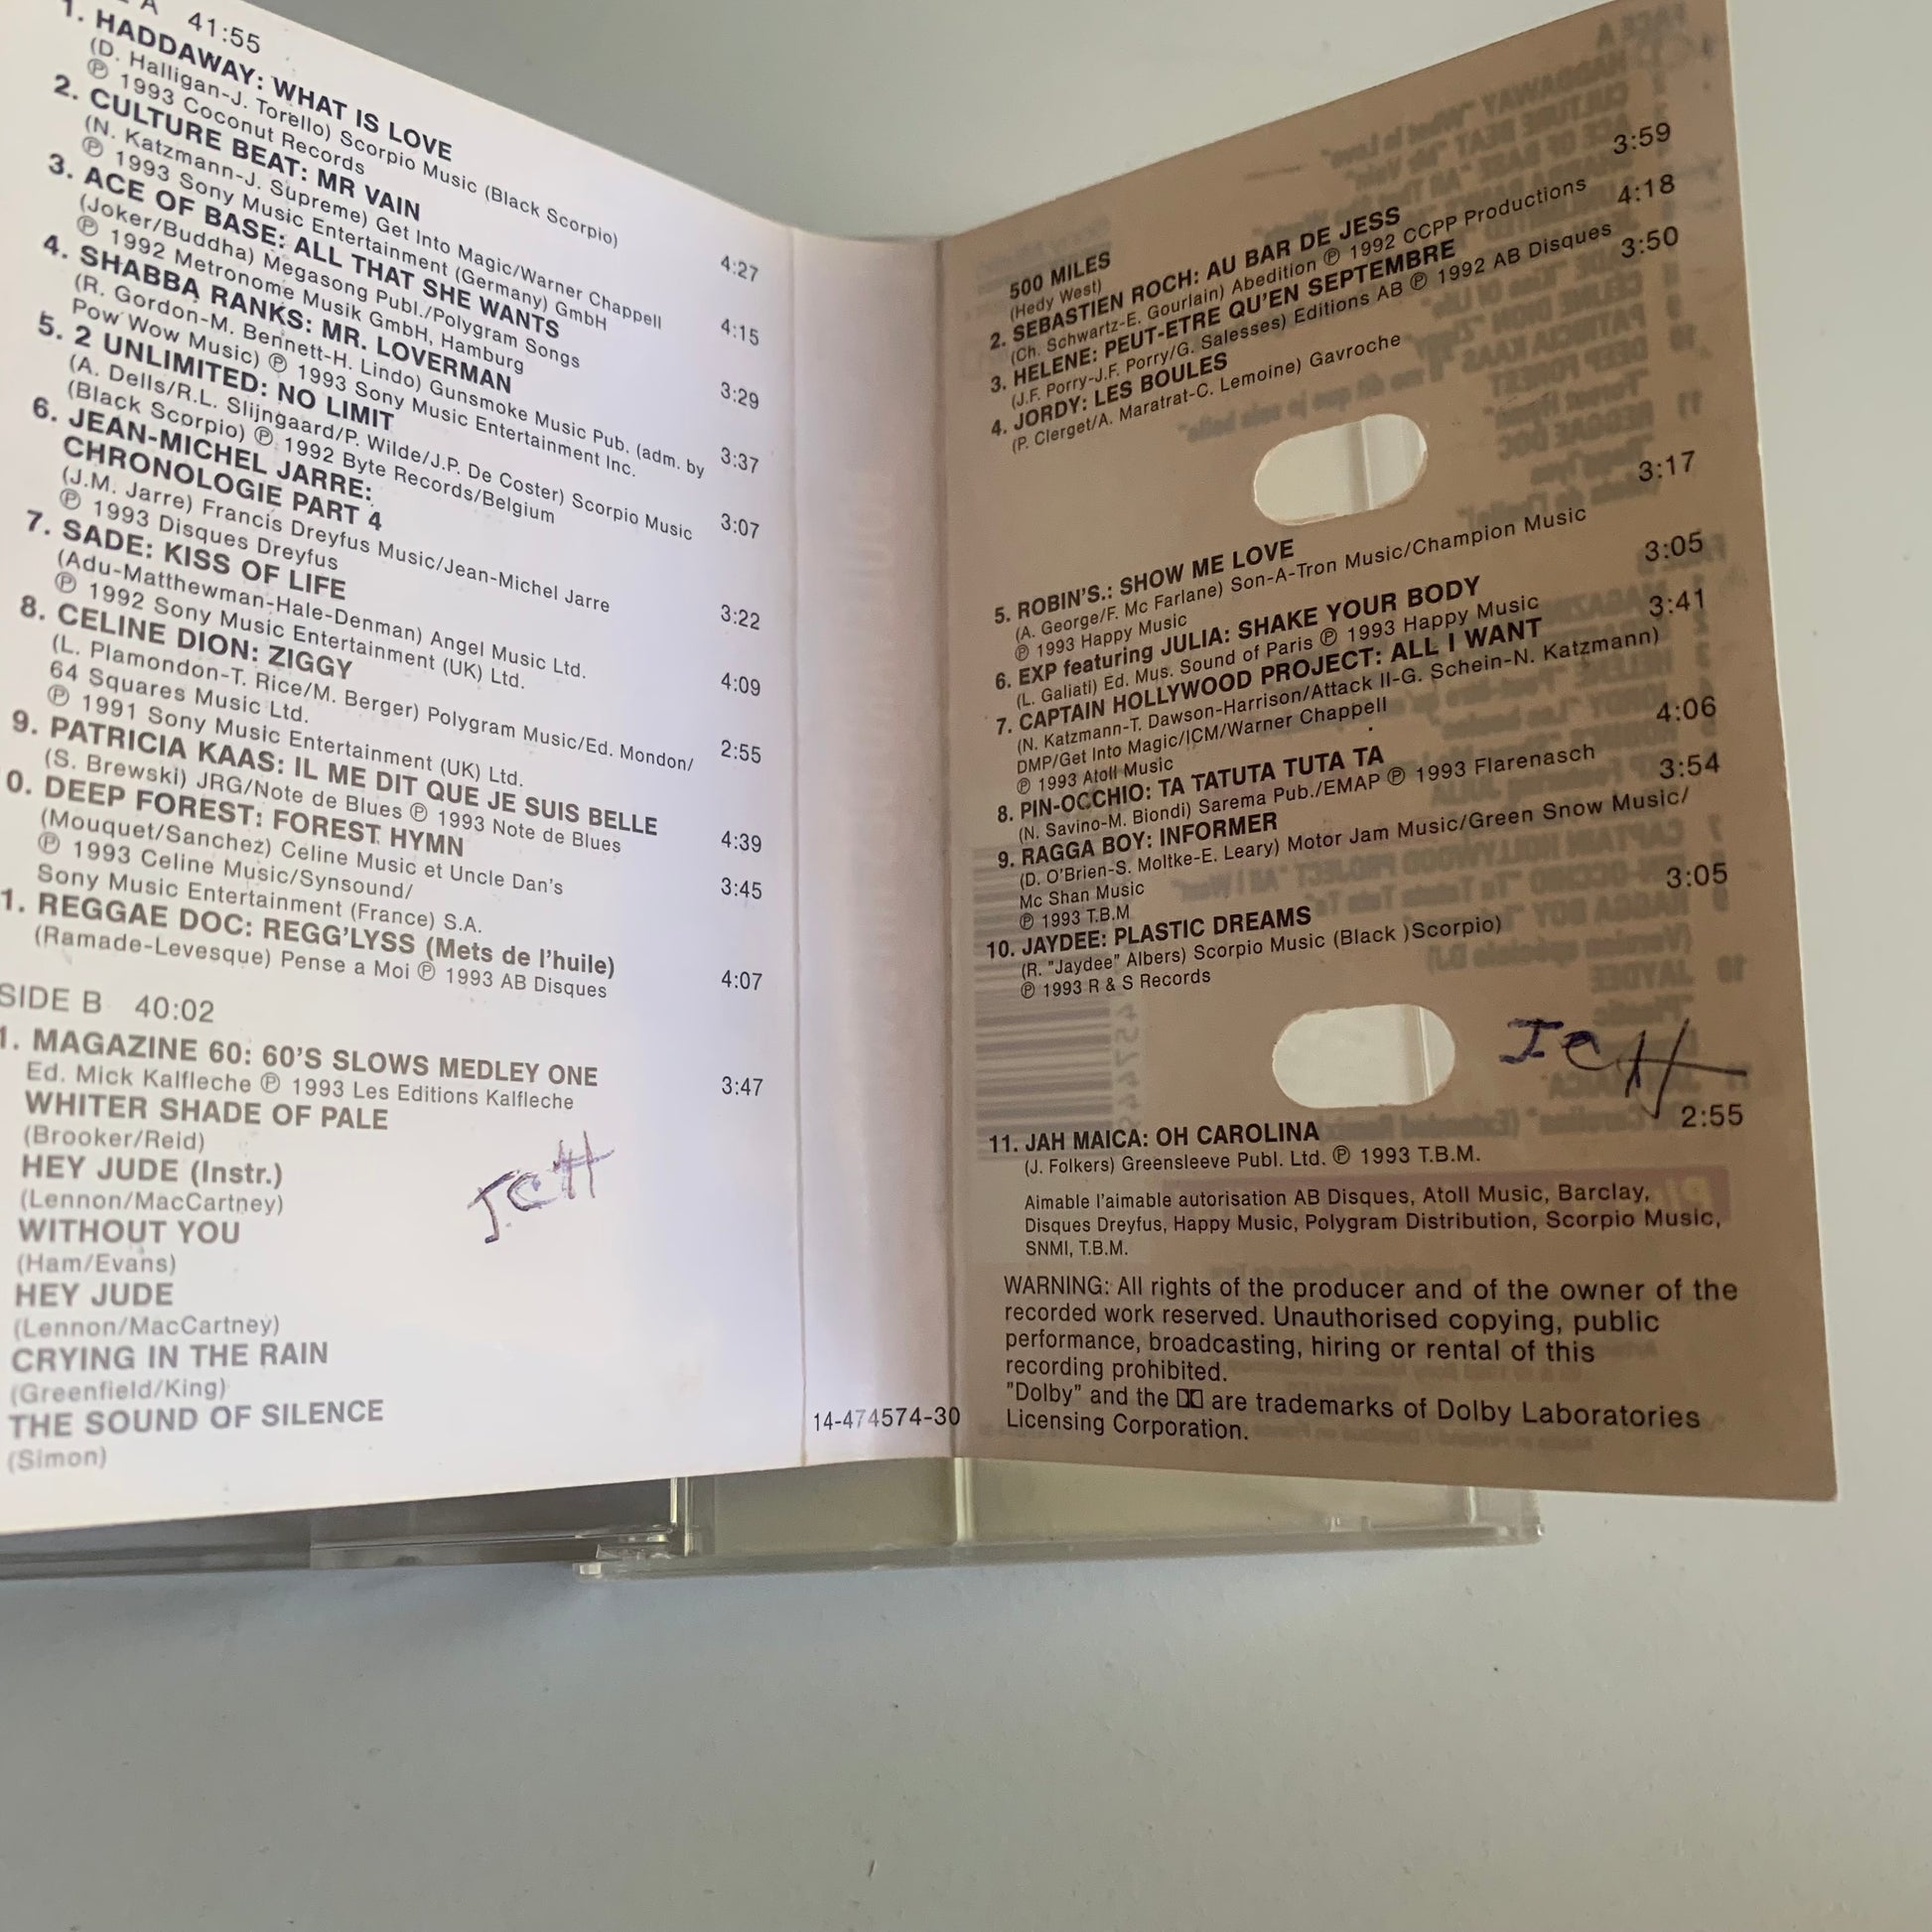 A 41:55
1. HADDAWAY: WHAT IS LOVE
(D. Halligan-J. Torello) Scorpio Music (Black Scorpio)
℗ 1993 Coconut Records 4:27
2. CULTURE BEAT: MR VAIN
(N. Katzmann-J. Supreme) Get Into Magic/Warner Chappell
℗ 1993 Sony Music Entertainment (Germany) GmbH 4:15
3. ACE OF BASE: ALL THAT SHE WANTS
(Joker/Buddha) Megasong Publ./Polygram Songs
℗ 1992 Metronome Musik GmbH, Hamburg 3:29
4. SHABBA RANKS: MR. LOVERMAN
(R. Gordon-M. Bennett-H. Lindo) Gunsmoke Music Pub. (adm. by
Pow Wow Music) ℗ 1993 Sony Music Entertainment Inc. 3:37
5. 2 UNLIMITED: NO LIMIT
(A. Dells/R.L. Slijngaard/P. Wilde/J.P. De Coster) Scorpio Music
(Black Scorpio) ℗ 1992 Byte Records/Belgium 3:07
6. JEAN-MICHEL JARRE:
CHRONOLOGIE PART 4
(J.M. Jarre) Francis Dreyfus Music/Jean-Michel Jarre
℗ 1993 Disques Dreyfus 3:22
7. SADE: KISS OF LIFE
(Adu-Matthewman-Hale-Denman) Angel Music Ltd.
℗ 1992 Sony Music Entertainment (UK) Ltd. 4:09
8. CELINE DION: ZIGGY
(L. Plamondon-T. Rice/M. Berger) Polygram Music/Ed. Mondon/
64 Squares Music Ltd.
℗ 1991 Sony Music Entertainment (UK) Ltd. 2:55
9. PATRICIA KAAS: IL ME DIT QUE JE SUIS BELLE
(S. Brewski) JRG/Note de Blues ℗ 1993 Note de Blues 4:39
0. DEEP FOREST: FOREST HYMN
(Mouquet/Sanchez) Celine Music et Uncle Dan's
℗ 1993 Celine Music/Synsound/ 3:45
Sony Music Entertainment (France) S.A.
1. REGGAE DOC: REGG'LYSS (Mets de l'huile)
(Ramade-Levesque) Pense a Moi ℗ 1993 AB Disques 4:07
SIDE B 40:02
1. MAGAZINE 60: 60'S SLOWS MEDLEY ONE
Ed. Mick Kalfleche ℗ 1993 Les Editions Kalfleche 3:47
WHITER SHADE OF PALE
(Brooker/Reid)
HEY JUDE (Instr.)
(Lennon/MacCartney)
JCH
WITHOUT YOU
(Ham/Evans)
HEY JUDE
(Lennon/MacCartney)
CRYING IN THE RAIN
(Greenfield/King)
THE SOUND OF SILENCE
(Simon)
14-474574-30
500 MILES
(Hedy West) 3:59
2. SEBASTIEN ROCH: AU BAR DE JESS
(Ch. Schwartz-E. Gourlain) Abedition ℗ 1992 CCPP Productions 4:18
3. HELENE: PEUT-ETRE QU'EN SEPTEMBRE
(J.F. Porry-J.F. Porry/G. Salesses) Editions AB ℗ 1992 AB Disques 3:50
4. JORDY: LES BOULES
(P. Clerget/A. Maratrat-C. Lemoine) Gavroche
3:17
5. ROBIN'S.: SHOW ME LOVE
(A. George/F. Mc Farlane) Son-A-Tron Music/Champion Music
℗ 1993 Happy Music 3:05
6. EXP featuring JULIA: SHAKE YOUR BODY
(L. Galiati) Ed. Mus. Sound of Paris ℗ 1993 Happy Music 3:41
7. CAPTAIN HOLLYWOOD PROJECT: ALL I WANT
(N. Katzmann-T. Dawson-Harrison/Attack II-G. Schein-N. Katzmann)
DMP/Get Into Magic/ICM/Warner Chappell
℗ 1993 Atoll Music 4:06
8. PIN-OCCHIO: TA TATUTA TUTA TA
(N. Savino-M. Biondi) Sarema Pub./EMAP ℗ 1993 Flarenasch 3:54
9. RAGGA BOY: INFORMER
(D. O'Brien-S. Moltke-E. Leary) Motor Jam Music/Green Snow Music/
Mc Shan Music
℗ 1993 T.B.M 3:05
10. JAYDEE: PLASTIC DREAMS
(R. "Jaydee" Albers) Scorpio Music (Black )Scorpio)
℗ 1993 R & S Records
JCH
2:55
11. JAH MAICA: OH CAROLINA
(J. Folkers) Greensleeve Publ. Ltd. ℗ 1993 T.B.M.
Aimable l'aimable autorisation AB Disques, Atoll Music, Barclay,
Disques Dreyfus, Happy Music, Polygram Distribution, Scorpio Music,
SNMI, T.B.M.
WARNING: All rights of the producer and of the owner of the
recorded work reserved. Unauthorised copying, public
performance, broadcasting, hiring or rental of this
recording prohibited.
"Dolby" and the are trademarks of Dolby Laboratories
Licensing Corporation.